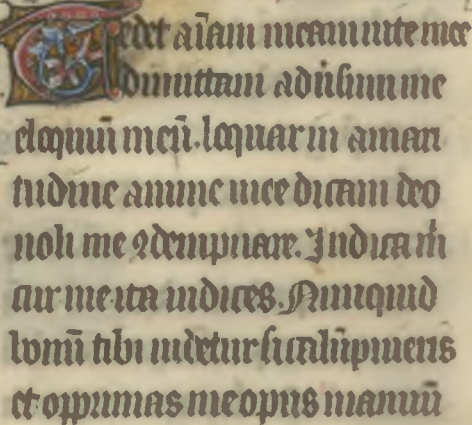 Tedet aīam meam vite mee
dimittam aduersum me
eloquiū meū. loquar in amari
tudine anime mee dicam deo
noli me ꝯdempnare. Indica m̄
cur me ita iudices. Nunquid
bonū tibi uidetur si calūpnieris
et opprimas me opus manuū